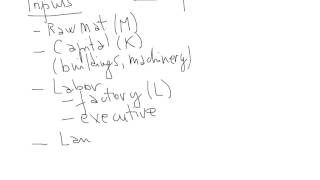 Inputs
- Raw mat (M)
- Capital (K)
(buildings, machinery)
- Labor
- factory (L)
- executive
- Lan